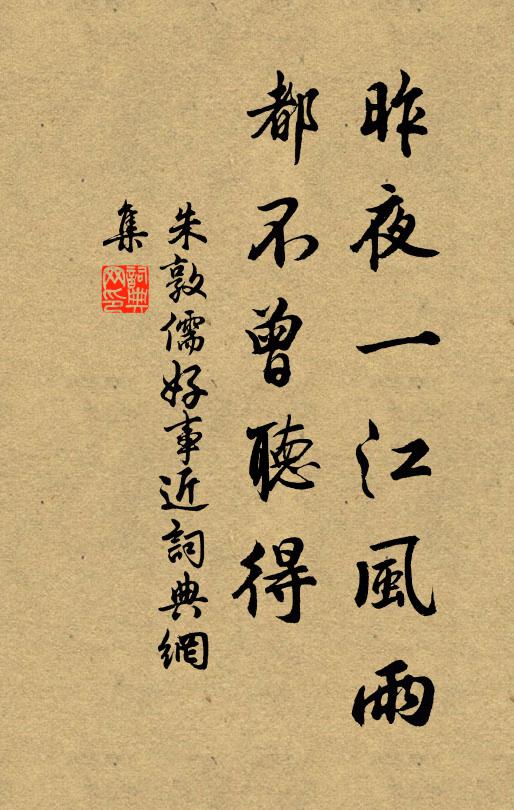 昨夜一江風雨
都不曾聽得
朱敦儒好事近詞典網
集
詞典
网印